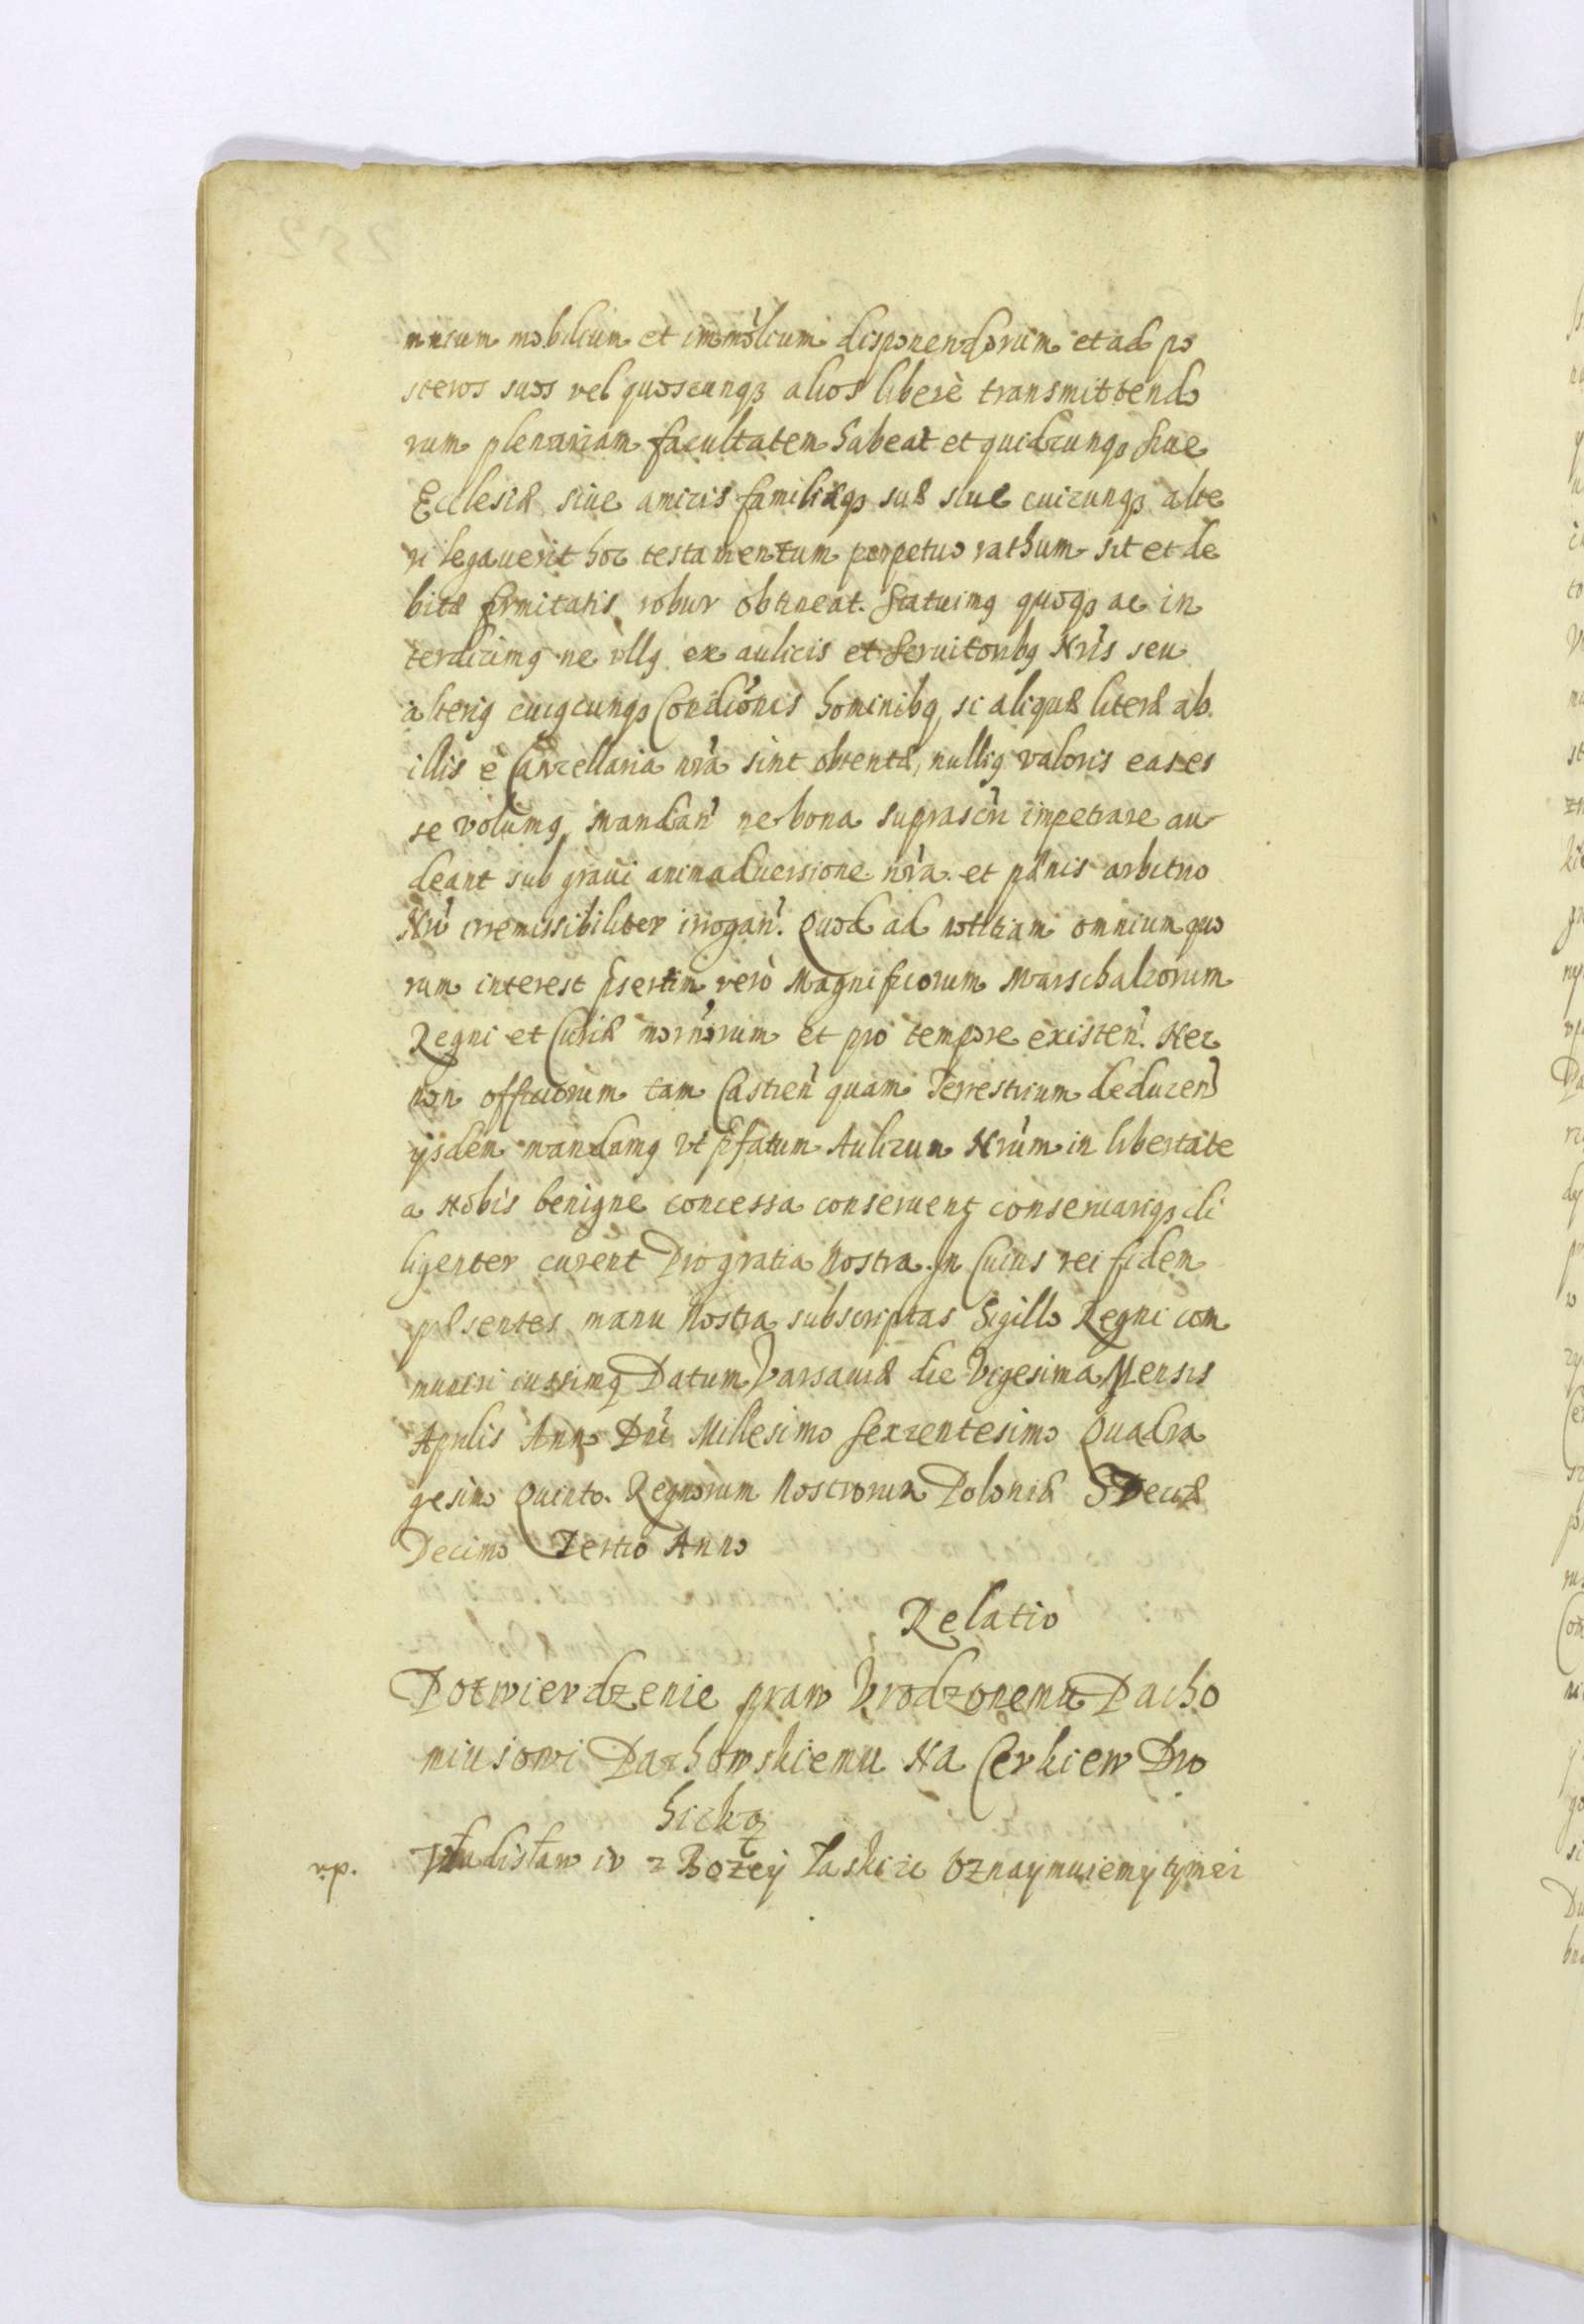 mnium mobilium et immo'lium disponendorum et ad po
steros suos vel quoscunqz alios liberè transmittendo
rum plenariam facultatem habeat et quidcunqz siue
Ecclesiæ siue amicis familiæqz suæ siue cuicunqz alte
ri legauerit hoc testamentum perpetuo rathum sit et de
bitæ firmitatis robur obtineat. Statuimq quoqz ac in
terdicimq ne vllq ex aulicis et seruitoribq Nris seu
alteriq cuiqcunqz Condiõnis hominibq, si aliquæ literæ ab
illis è Cancellaria nra sint obtentæ, nulliq valoris eas es
se volumq, mandan' ne bona suprascri impetrare au
deant sub graui animaduersione nra et pænis arbitrio
Nri irremissibiliter irrogan'. Quod ad notitiam omnium quo
rum interest psertim verò Magnificorum Marschalcorum
Regni et Curiæ nrorum et pro tempore existen'. Nec
non officiorum tam Castren' quam Terrestrium deducen'
ijsdem mandamq vt pfatum Aulicum Nrum in libertate
a Nobis benigne concessa conseruent conseruariqz di
ligenter curent Pro gratia Nostra. In Cuius rei fidem
præsentes manu Nostra subscriptas Sigillo Regni com
muniri iussimq Datum Varsauiæ die Vigesima Mensis
Aprilis Anno Dni Millesimo Sexcentesimo Quadra
gesimo Quinto. Regnorum Nostrorum Poloniæ Sveciæ
Decimo Tertio Anno
Relatio
Potwierdzenie praw Vrodzonemu Pacho
miusowi Pachowskiemu Na Cerkiew Dro
hicką
r.p. Władisław iv z Bozey Łaski etc Oznaymuiemy tym ei